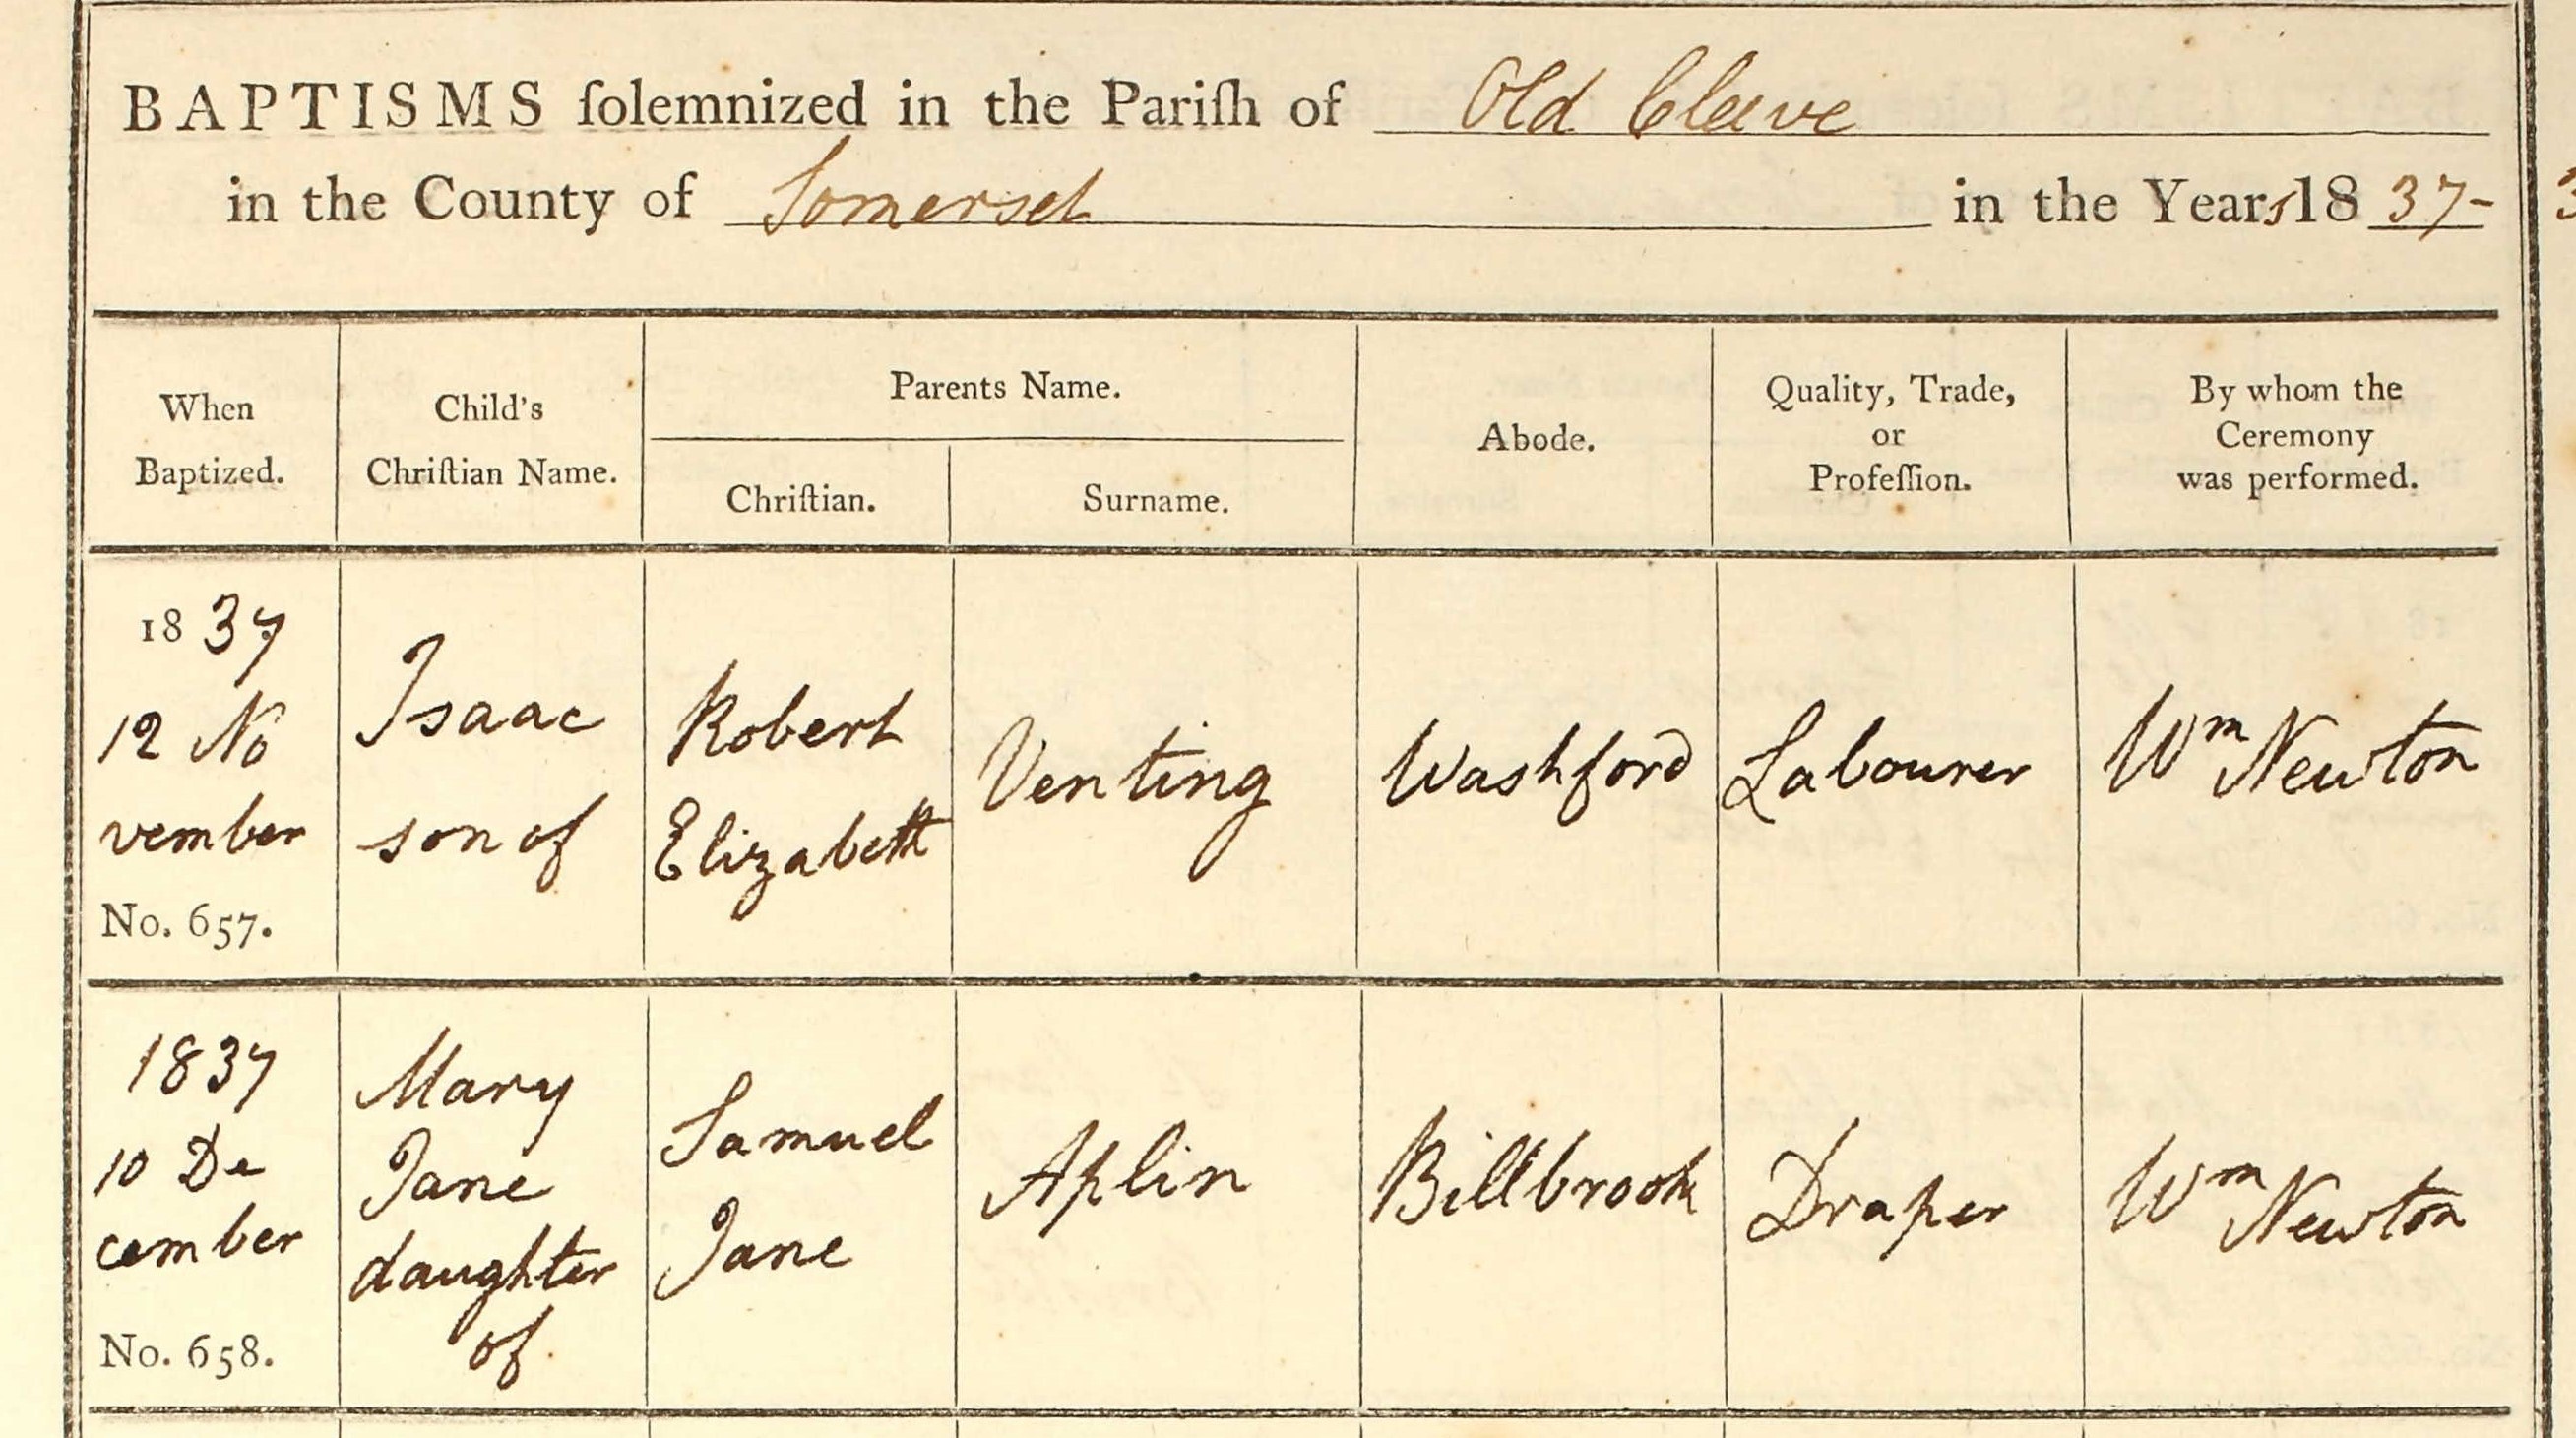 BAPTISMS ſolemnized in the Pariſh of Old Cleeve
in the County of Somerset in the Years 1837-
When
Baptized.
Child's
Chriſtian Name.
Parents Name.
Chriſtian.
Surname.
Abode.
Quality, Trade,
or
Profeſſion.
By whom the
Ceremony
was performed.
1837
12 No
vember
No. 657.
Isaac
son of
Robert
Elizabeth
Venting
Washford
Labourer
Wm Newton
1837
10 De
cember
No. 658.
Mary
Jane
daughter
of
Samuel
Jane
Aplin
Billbrook
Draper
Wm Newton